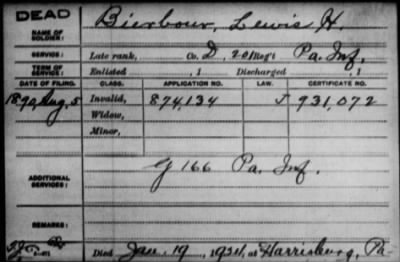 DEAD
NAME OF SOLDIER: Bierbour, Lewis H.
SERVICE: Late rank, Co. D, 201 Reg't Pa. Inf.
TERM OF SERVICE: Enlisted , 1 Discharged , 1
DATE OF FILING. CLASS. APPLICATION NO. LAW. CERTIFICATE NO.
1890, Aug. 5 Invalid, 874,134 J 931,072
Widow,
Minor,
ADDITIONAL SERVICES: G 166 Pa. Inf.
REMARKS:
Died Jan. 19, 1924, at Harrisburg, Pa-